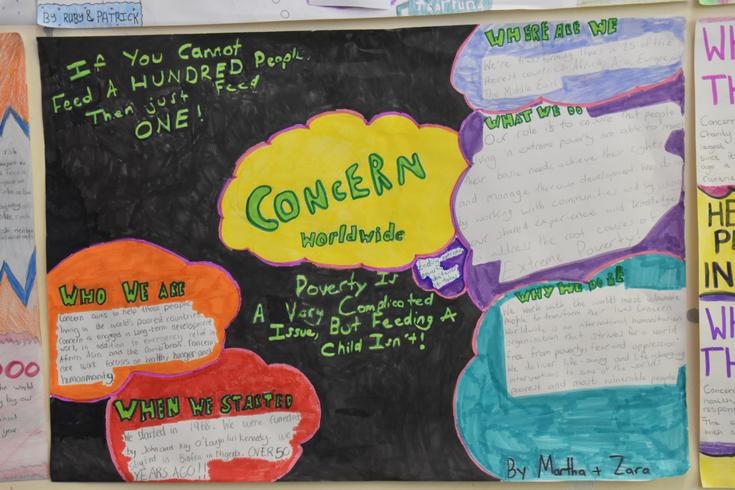 BY RUBY & PATRICK
If You Cannot
Feed A HUNDRED People,
Then just Feed
ONE!
CONCERN
Worldwide
Poverty Is
A Very Complicated
Issue, But Feeding A
Child Isn't!
WHO WE ARE
Concern aims to help those people
living in the world's poorest countries
Concern is engaged in long-term development
work, in addition to emergency relief in
Africa Asia and the Caribbean. Concern
are work focuses on healthy, hunger and
humanmanity
WHEN WE STARTED
We started in 1968. We were funded
by John and Kay O'Loughlin Kennedy. We
started in Biafra in Nigeria. OVER 50
YEARS AGO!!
WHERE ARE WE
We're transforming lives in 25 of the
Poorest countries Africa, Asia, Europe
The Middle East
WHAT WE DO
Our role is to ensure that people
living in extreme poverty are able to meet
their basic needs, achieve their rights
and manage their own development. We do
by working with communities and by using
our shared experience and knowledge
address the root causes of
Extreme Poverty
WHY WE DO IT
We work with the world's most vulnerable
people to transform their lives. Concern
Worldwide is an international humanitarian
organisation that strives for a world
free from poverty, fear and oppression.
We deliver life-saving and life-changing
interventions to some of the world's
poorest and most vulnerable people
By Martha + Zara
WH
TH
Concern
Charity
largest
HE
PE
IN
WH
TH
Concern
health,
respon
The
with